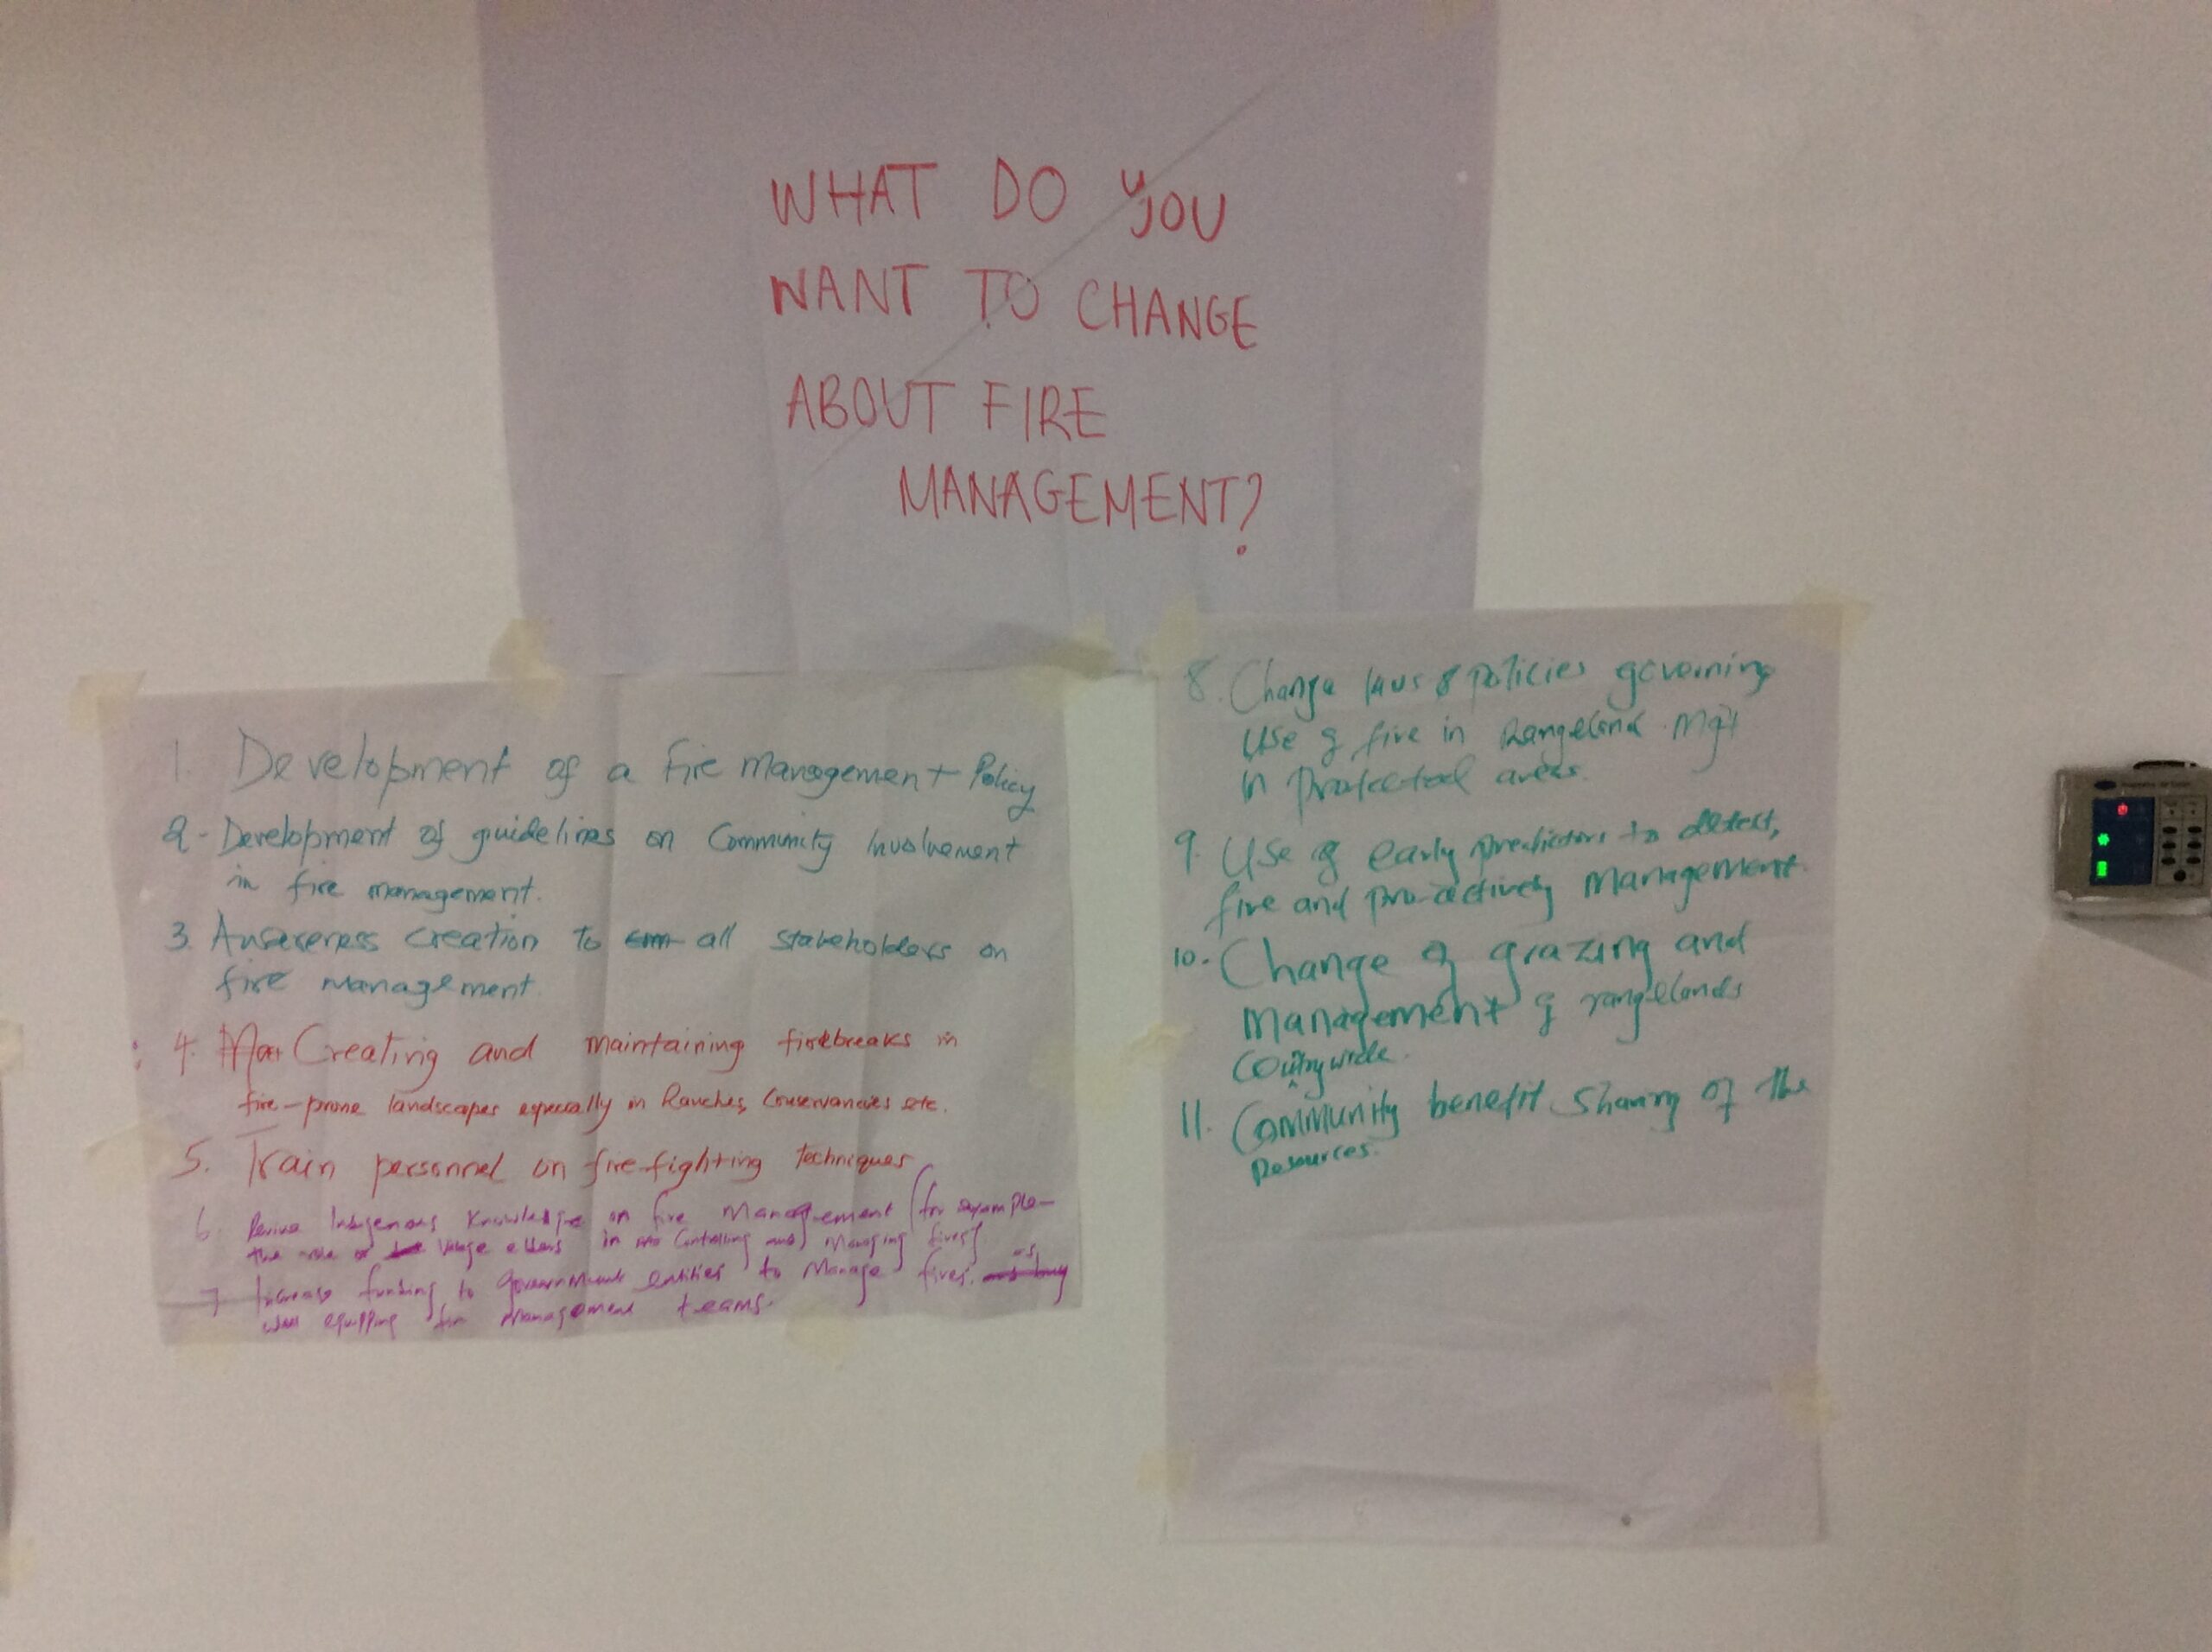 WHAT DO YOU
WANT TO CHANGE
ABOUT FIRE
MANAGEMENT?
1. Development of a Fire Management Policy
2- Development of guidelines on Community Involvement
in fire management.
3. Awareness creation to all stakeholders on
fire management
4. Creating and maintaining firebreaks in
fire-prone landscapes especially in Ranches, Conservancies etc.
5. Train personnel on fire fighting techniques
6. Revive Indigenous Knowledge on fire Management (for example-
the role of village elders in controlling and managing fires)
7 Increase funding to Government entities to Manage fires. as
well equipping fire management teams.
8. Change laws & policies governing
Use of fire in Rangeland Mgt
in protected areas.
9. Use of early predictors to detect,
fire and pro-actively management.
10. Change of grazing and
management of rangelands
Countrywide.
11. Community benefit sharing of the
Resources.